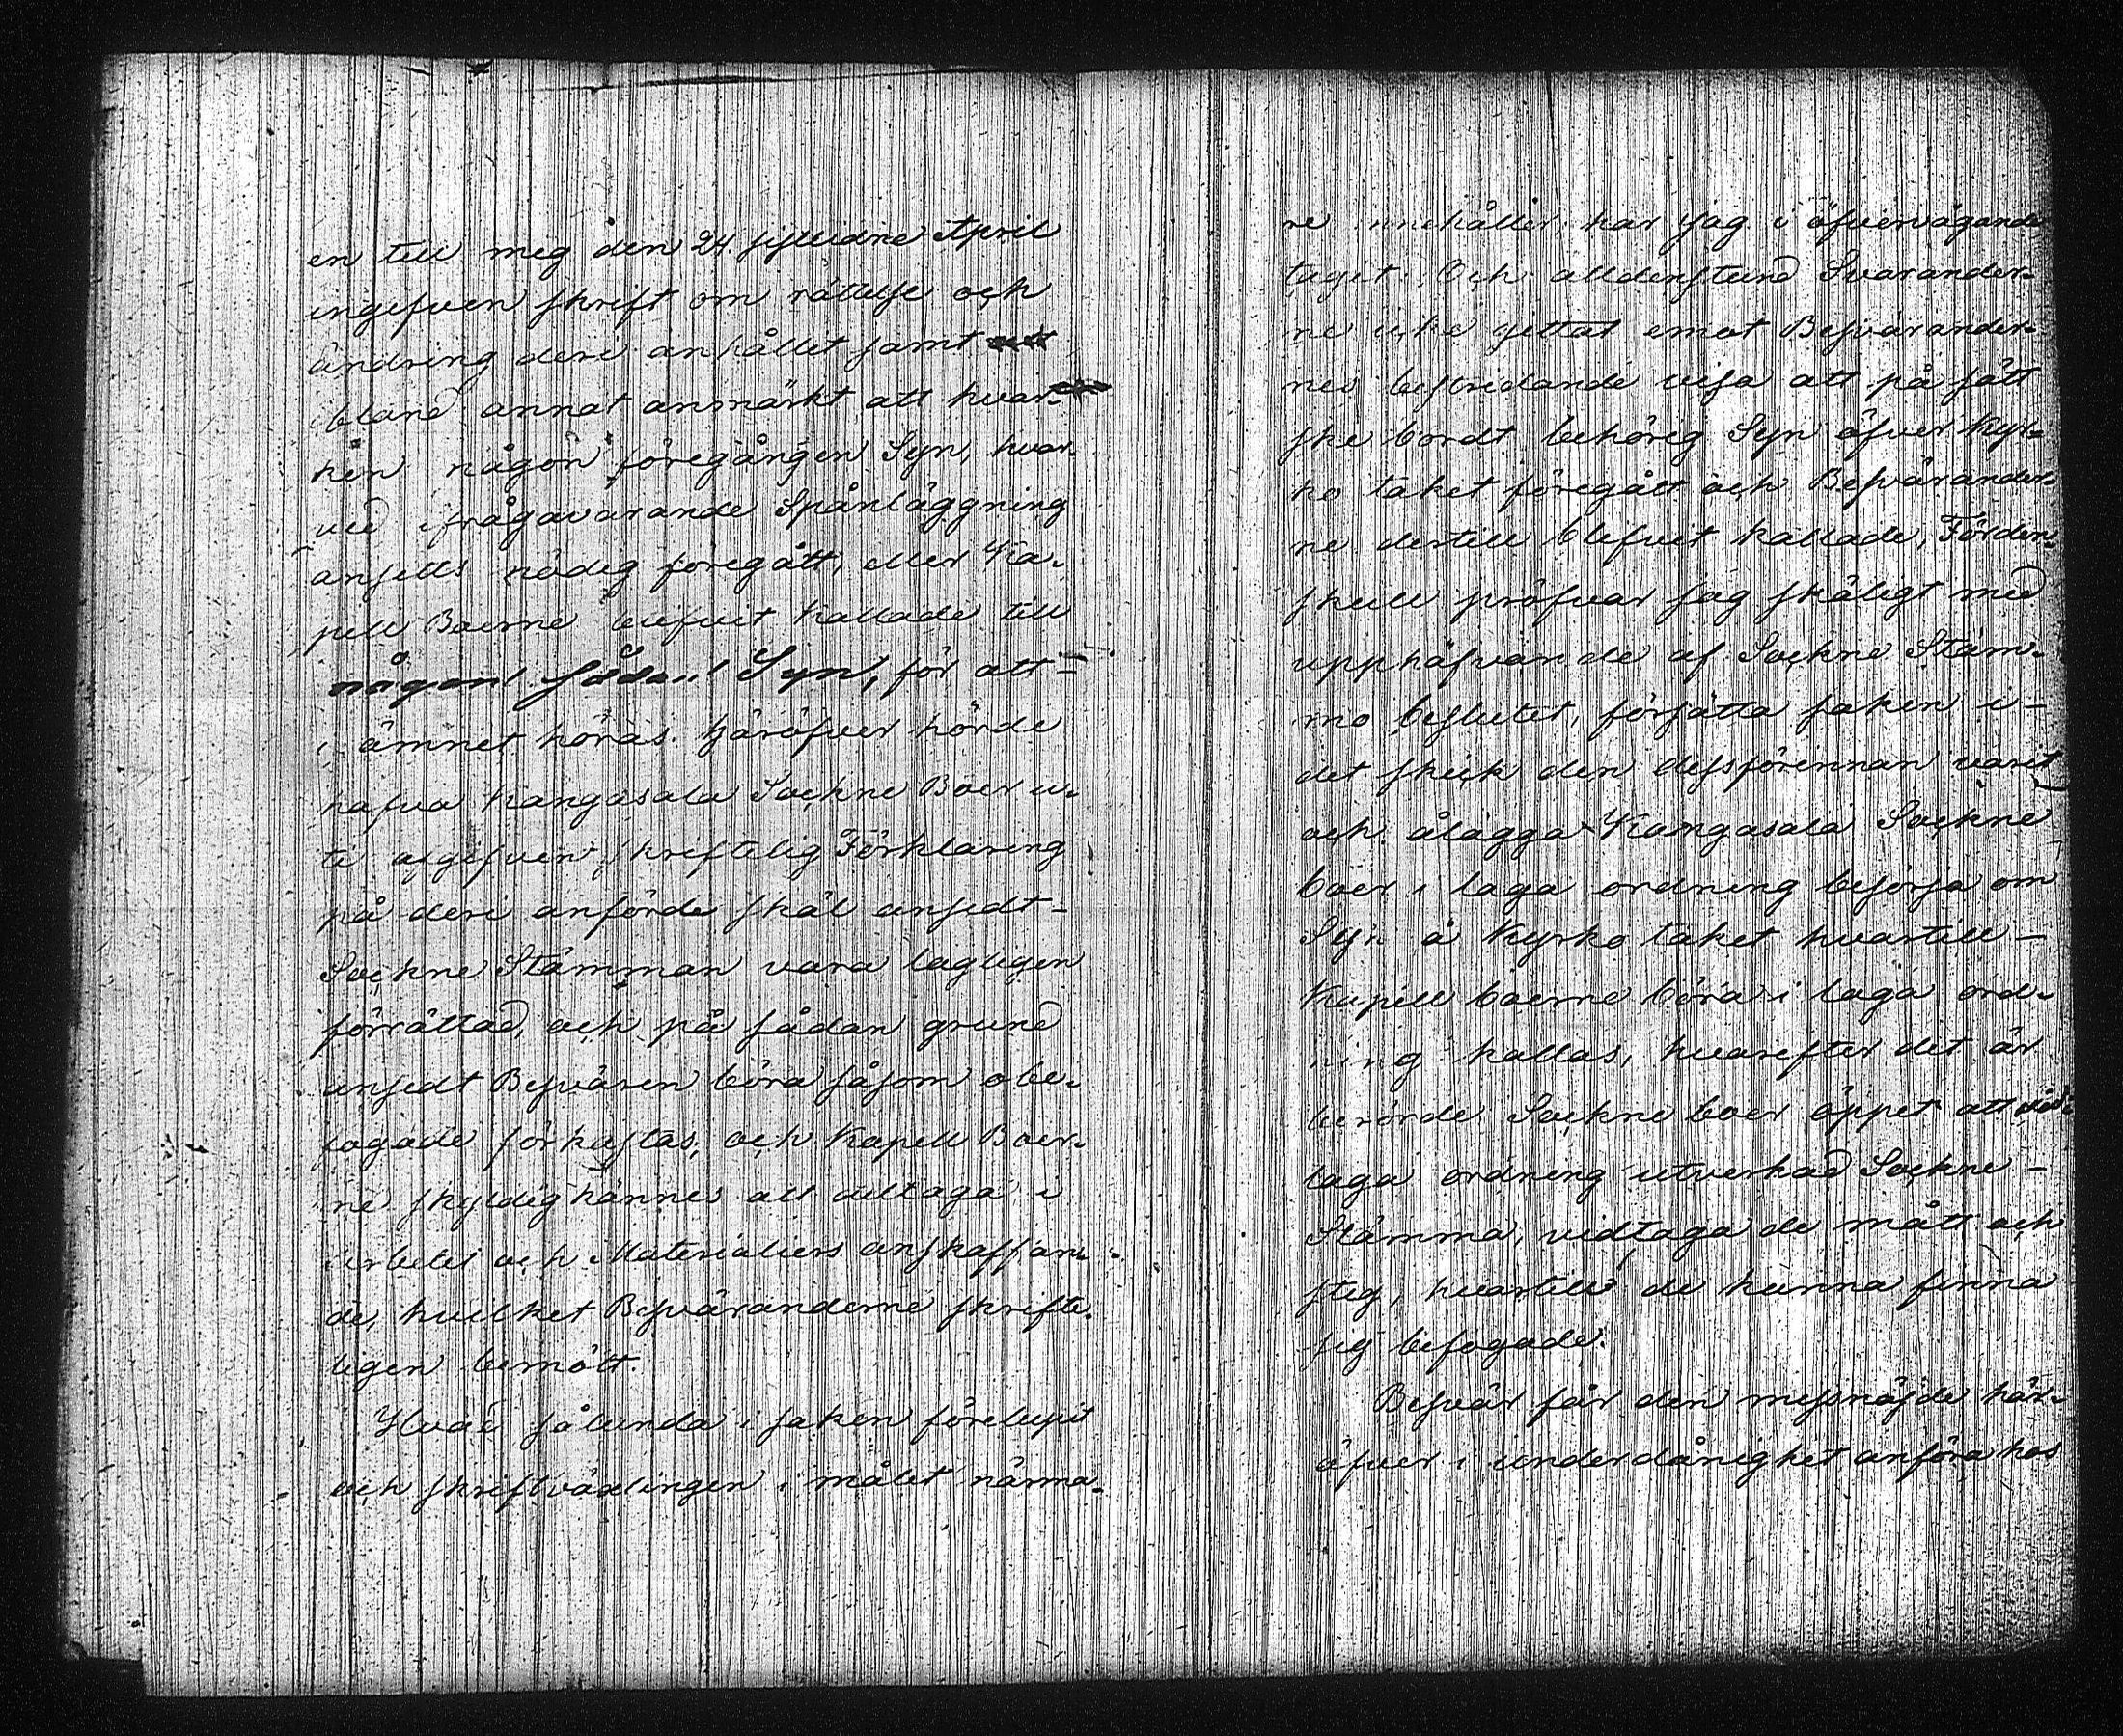 en till mig den 24. sistledne April
ingifven skrift om rättelse och
ändring deri anhållit samt
ibland annat anmärkt att hvar-
ken någon föregången Syn, hvar-
vid ifrågavarande Spånläggning
ansetts nödig föregått, eller Ka-
pell Boerne blifvit kallade till
någon sådan Syn, för att
i ämnet höras. Häröfver hörde
hafva Kangasala Sockne Boer u-
ti afgifven skriftelig Förklaring
på deri anförde skäl ansedt
Sockne Stämman vara lagligen
förrättad, och på sådan grund
ansedt Besvären böra såsom obe-
fogade förkastas, och Kapell Boer-
ne skyldig kännes att deltaga i
arbetet och Materialiers anskaffan-
de, hvilket Besväranderne skrifte-
ligen bemött.
Hvad sålunda i saken förelupit
och skriftväxlingen i målet närma-
re innehåller, har jag i öfvervägande
tagit. Och alldenstund Svarander-
ne icke gittat emot Besvärander-
nes bestridande visa att på sätt
ske bordt behörig Syn öfver Kyr-
ko taket föregått och Besvärander-
ne dertill blifvit kallade, Förden-
skull pröfvar jag skäligt med
upphäfvande af Sockne Stäm-
mo beslutet, försätta saken i
det skick den dessförinnan varit
och ålägga Kangasala Sockne
boer i laga ordning besörja om
Syn å Kyrko taket hvartill
Kapell boerne böra i laga ord-
ning kallas, hvarefter det är
berörde Sockne boer öppet att vid
laga ordning utverkad Sockne
Stämma, vidtaga de mått och
steg, hvartill de kunna finna
sig befogade.
Besvär får den missnöjde här-
öfver i underdånighet anföra hos